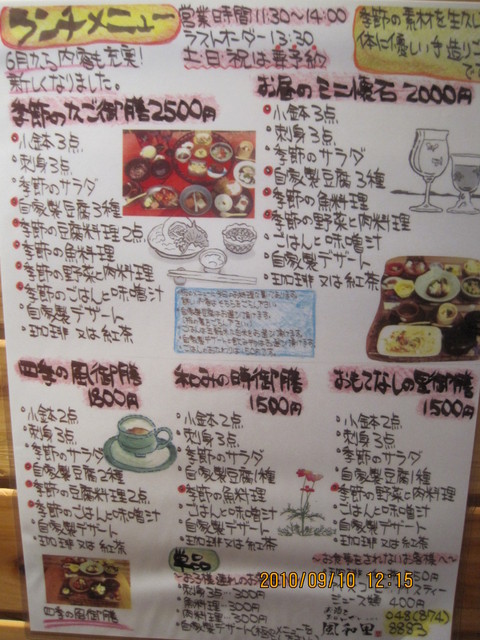 ランチメニュー
営業時間 11:30〜14:00
ラストオーダー 13:30
土・日・祝は要予約
季節の素材を生か
体に優しい手造りご
で
6月から内容も充実!
新しくなりました。
季節のかご御膳 2500円
・小鉢3点
・刺身3点
・季節のサラダ
・自家製豆腐3種
・季節の豆腐料理2点
・季節の魚料理
・季節の野菜と肉料理
・季節のごはんと味噌汁
・自家製デザート
・珈琲又は紅茶
お昼のミニ懐石 2000円
・小鉢3点
・刺身3点
・季節のサラダ
・自家製豆腐3種
・季節の魚料理
・季節の野菜と肉料理
・ごはんと味噌汁
・自家製デザート
・珈琲又は紅茶
四季の風御膳
1800円
・小鉢2点
・刺身3点
・季節のサラダ
・自家製豆腐2種
・季節の豆腐料理2点
・季節のごはんと味噌汁
・自家製デザート
・珈琲又は紅茶
四季の風御膳
和みの時御膳
1500円
・小鉢2点
・刺身3点
・季節のサラダ
・自家製豆腐1種
・季節の魚料理
・ごはんと味噌汁
・自家製デザート
・珈琲又は紅茶
おもてなしの里御膳
1500円
・小鉢2点
・刺身3点
・季節のサラダ
・自家製豆腐1種
・季節の野菜と肉料理
・ごはんと味噌汁
・自家製デザート
・珈琲又は紅茶
単品
〜お子様連れのお
刺身3点…300円
魚料理…300円
肉料理…300円
自家製デザート
〜お食事をされないお客様へ〜
ジュース類 400円
風和里
048(874)
8883
2010/09/10 12:15